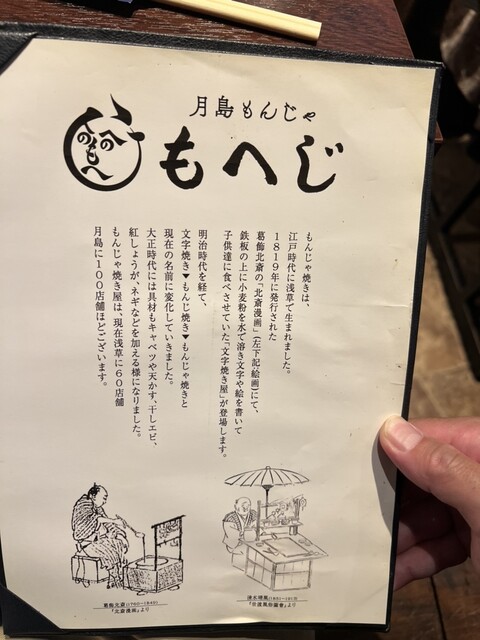 月島もんじゃ
もへじ
へのへのもへ
もんじゃ焼きは、
江戸時代に浅草で生まれました。
1819年に発行された
葛飾北斎の「北斎漫画」(左下記絵画)にて、
鉄板の上に小麦粉を水で溶き文字や絵を書いて
子供達に食べさせていた「文字焼き屋」が登場します。
明治時代を経て、
文字焼き▼もんじ焼き▼もんじゃ焼きと
現在の名前に変化していきました。
大正時代には具材もキャベツや天かす、干しエビ、
紅しょうが、ネギなどを加える様になりました。
もんじゃ焼き屋は、現在浅草に60店舗
月島に100店舗ほどございます。
葛飾北斎(1760〜1849)
「北斎漫画」より
清水晴風(1851〜1913)
「世渡風俗圖會」より